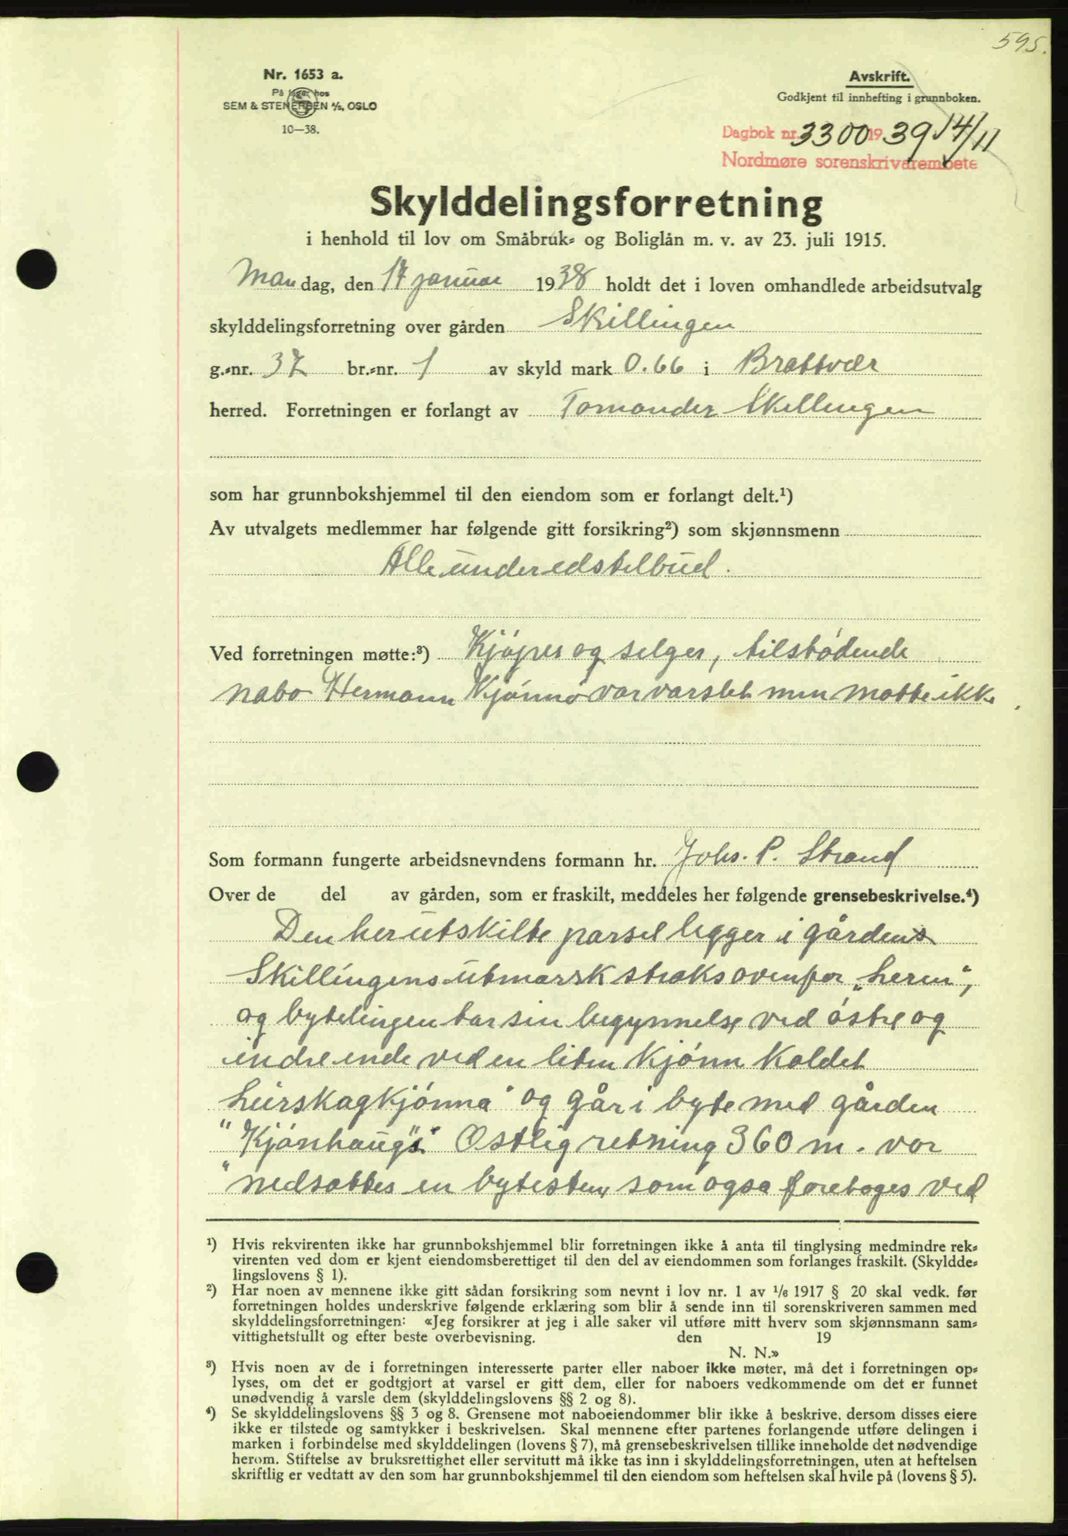 595.
Nr. 1653 a.
På lager hos
SEM & STENERSEN A/S, OSLO
10—38.
Avskrift.
Godkjent til innhefting i grunnboken.
Dagbok nr. 3300 1939 14/11
Nordmøre sorenskriverembete
Skylddelingsforretning
i henhold til lov om Småbruk- og Boliglån m. v. av 23. juli 1915.
Mandag, den 17 januar 1938 holdt det i loven omhandlede arbeidsutvalg
skylddelingsforretning over gården Skillingen
g.-nr. 37 br.-nr. 1 av skyld mark 0.66 i Brattvær
herred. Forretningen er forlangt av Tomander Skillingen
som har grunnbokshjemmel til den eiendom som er forlangt delt.¹)
Av utvalgets medlemmer har følgende gitt forsikring²) som skjønnsmenn
Alle under edstilbud.
Ved forretningen møtte:³) Kjøper og selger, tilstødende
nabo Hermann Kjønnø var varslet men møtte ikke.
Som formann fungerte arbeidsnevndens formann hr. Johs. P. Strand
Over de del av gården, som er fraskilt, meddeles her følgende grensebeskrivelse.⁴)
Den her utskilte parsel ligger i gården
Skillingens utmark straks ovenfor „herin",
og bytelingen tar sin begynnelse ved østre og
indre ende ved en liten Kjønn Kaldet
heirskagkjønna" og går i byte med gården
"Kjønhaug" i Østlig retning 360 m. vor
"nedsattes en bytesten, som også foretages ved
¹) Hvis rekvirenten ikke har grunnbokshjemmel blir forretningen ikke å anta til tinglysing medmindre rek-
virenten ved dom er kjent eiendomsberettiget til den del av eiendommen som forlanges fraskilt. (Skyldde-
lingslovens § 1).
²) Har noen av mennene ikke gitt sådan forsikring som nevnt i lov nr. 1 av 1/6 1917 § 20 skal vedk. før
forretningen holdes underskrive følgende erklæring som blir å sende inn til sorenskriveren sammen med
skylddelingsforretningen: «Jeg forsikrer at jeg i alle saker vil utføre mitt hverv som skjønnsmann sam-
vittighetsfullt og efter beste overbevisning. den 19
N. N.»
³) Hvis noen av de i forretningen interesserte parter eller naboer ikke møter, må det i forretningen op-
lyses, om det er godtgjort at varsel er gitt dem, eller for naboers vedkommende om det er funnet
unødvendig å varsle dem (skylddelingslovens §§ 2 og 8).
⁴) Se skylddelingslovens §§ 3 og 8. Grensene mot naboeiendommer blir ikke å beskrive, dersom disses eiere
ikke er tilstede og samtykker i beskrivelsen. Skal mennene efter partenes forlangende utføre delingen i
marken i forbindelse med skylddelingen (lovens § 7), må grensebeskrivelsen tillike inneholde det nødvendige
herom. Stiftelse av bruksrettighet eller servitutt må ikke tas inn i skylddelingsforretningen, uten at heftelsen
skriftlig er vedtatt av den som har grunnbokshjemmel til den eiendom som heftelsen skal hvile på (lovens § 5).